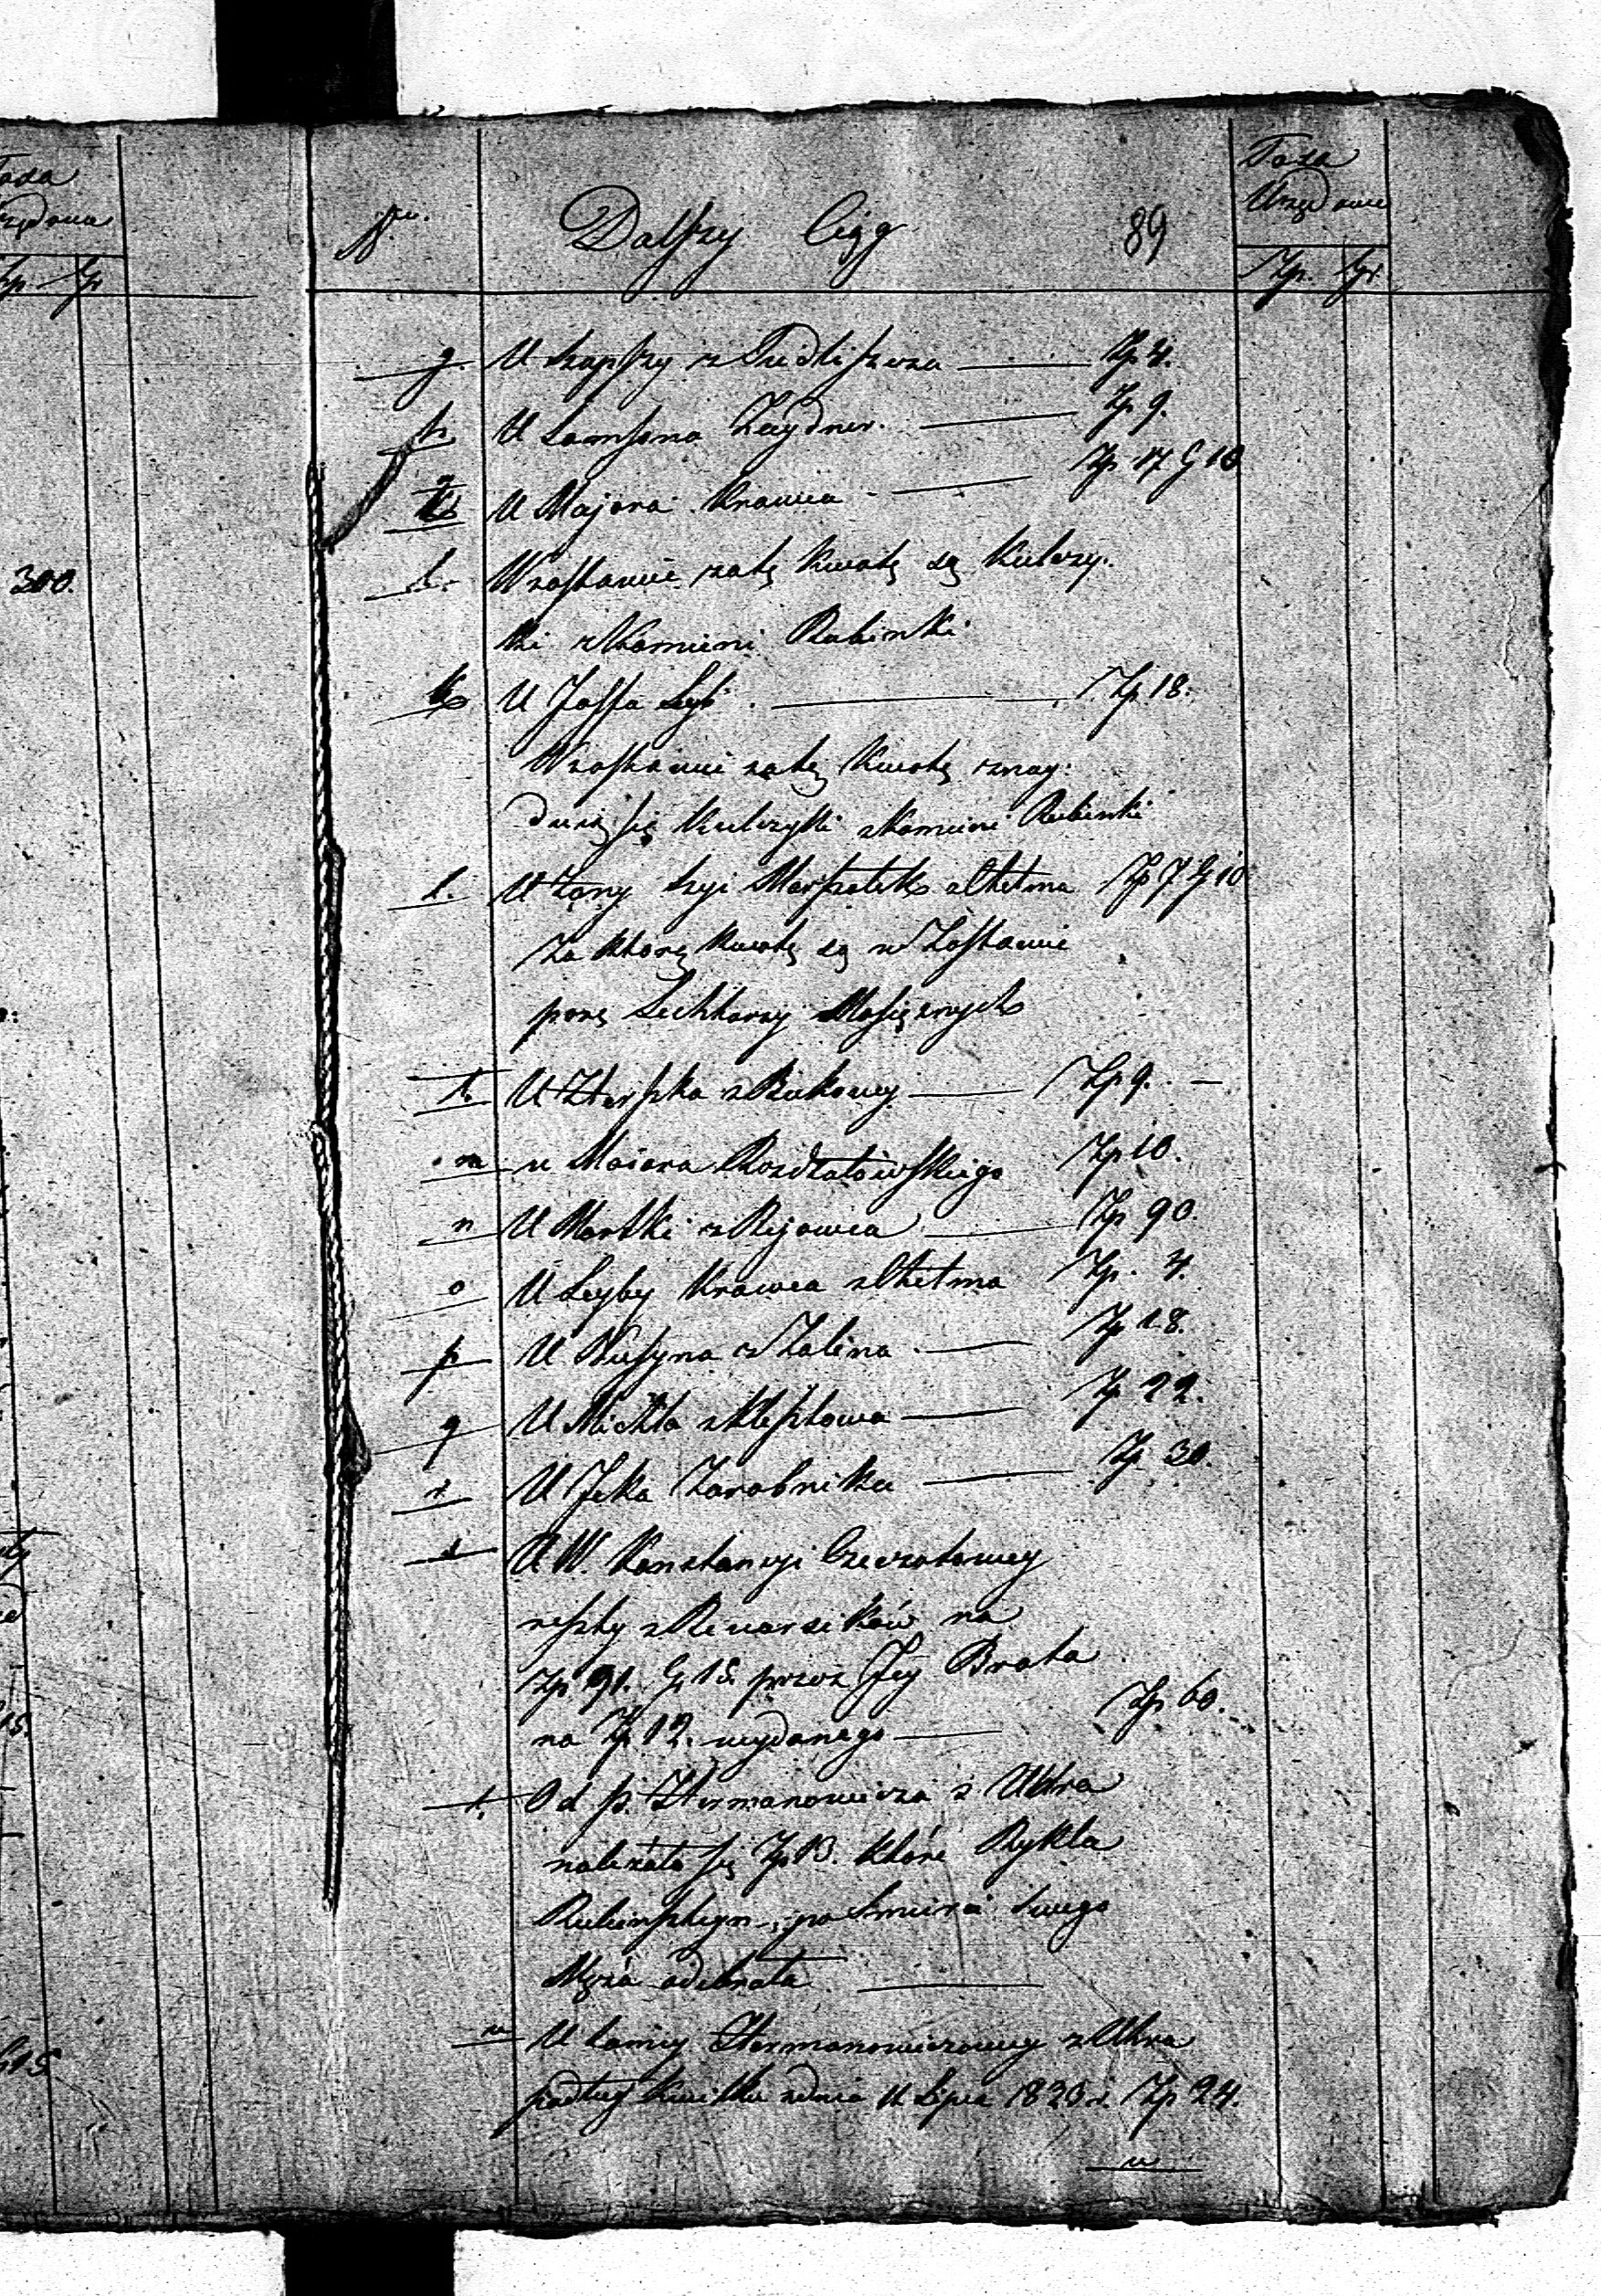 Taxa
Urzędowa
Nro. Dalszy Ciąg 89
Zp. Gr.
300.
g. U Szapszy z Siedliszcza — Zp 4.
h. U Samsona Zeydner. — Zp 9.
U Majora Krawca — Zp 17 G 10
i. W zastawie za tę kwotę są Kulczy-
ki z Kamieni Rubinki
k U Josfa Leyb. — Zp 18.
W zastawie za tę kwotę znay:
duią się Kulczyki z kamieni Rubinki
l. U Żony Szyi Marszalek z Chełma Zp 7 G 10
Za którą kwotę są w Zastawie
parę Lichtarzy Mosiężnych
ł. U Herszka z Bukowy — Zp 9. —
m u Maiora Rozdzałowskiego Zp 10.
n U Mortki z Rejowca — Zp 90.
o U Leyby Krawca z Chełma Zp. 4.
p U Nusyna z Zalina — Zp 18.
q U Michla z Klesztowa — Zp 22.
r U Jcka Zarobnika — Zp 30.
s U W. Konstancyi Czeczotowey
reszty z Rewersików na
Zp 91. G 15 przez Jey Brata
na Zp 12. wydanego — Zp 60.
t. Od p. Hermanowicza z Uhra
należało się Zp 13. które Rykla
Rubinszteyn po Smierci Swego
Męża odebrała —
u U Samey Hermanowiczowey z Uhra
podług Kwitku z dnia 11 Lipca 1823 r. Zp 24.